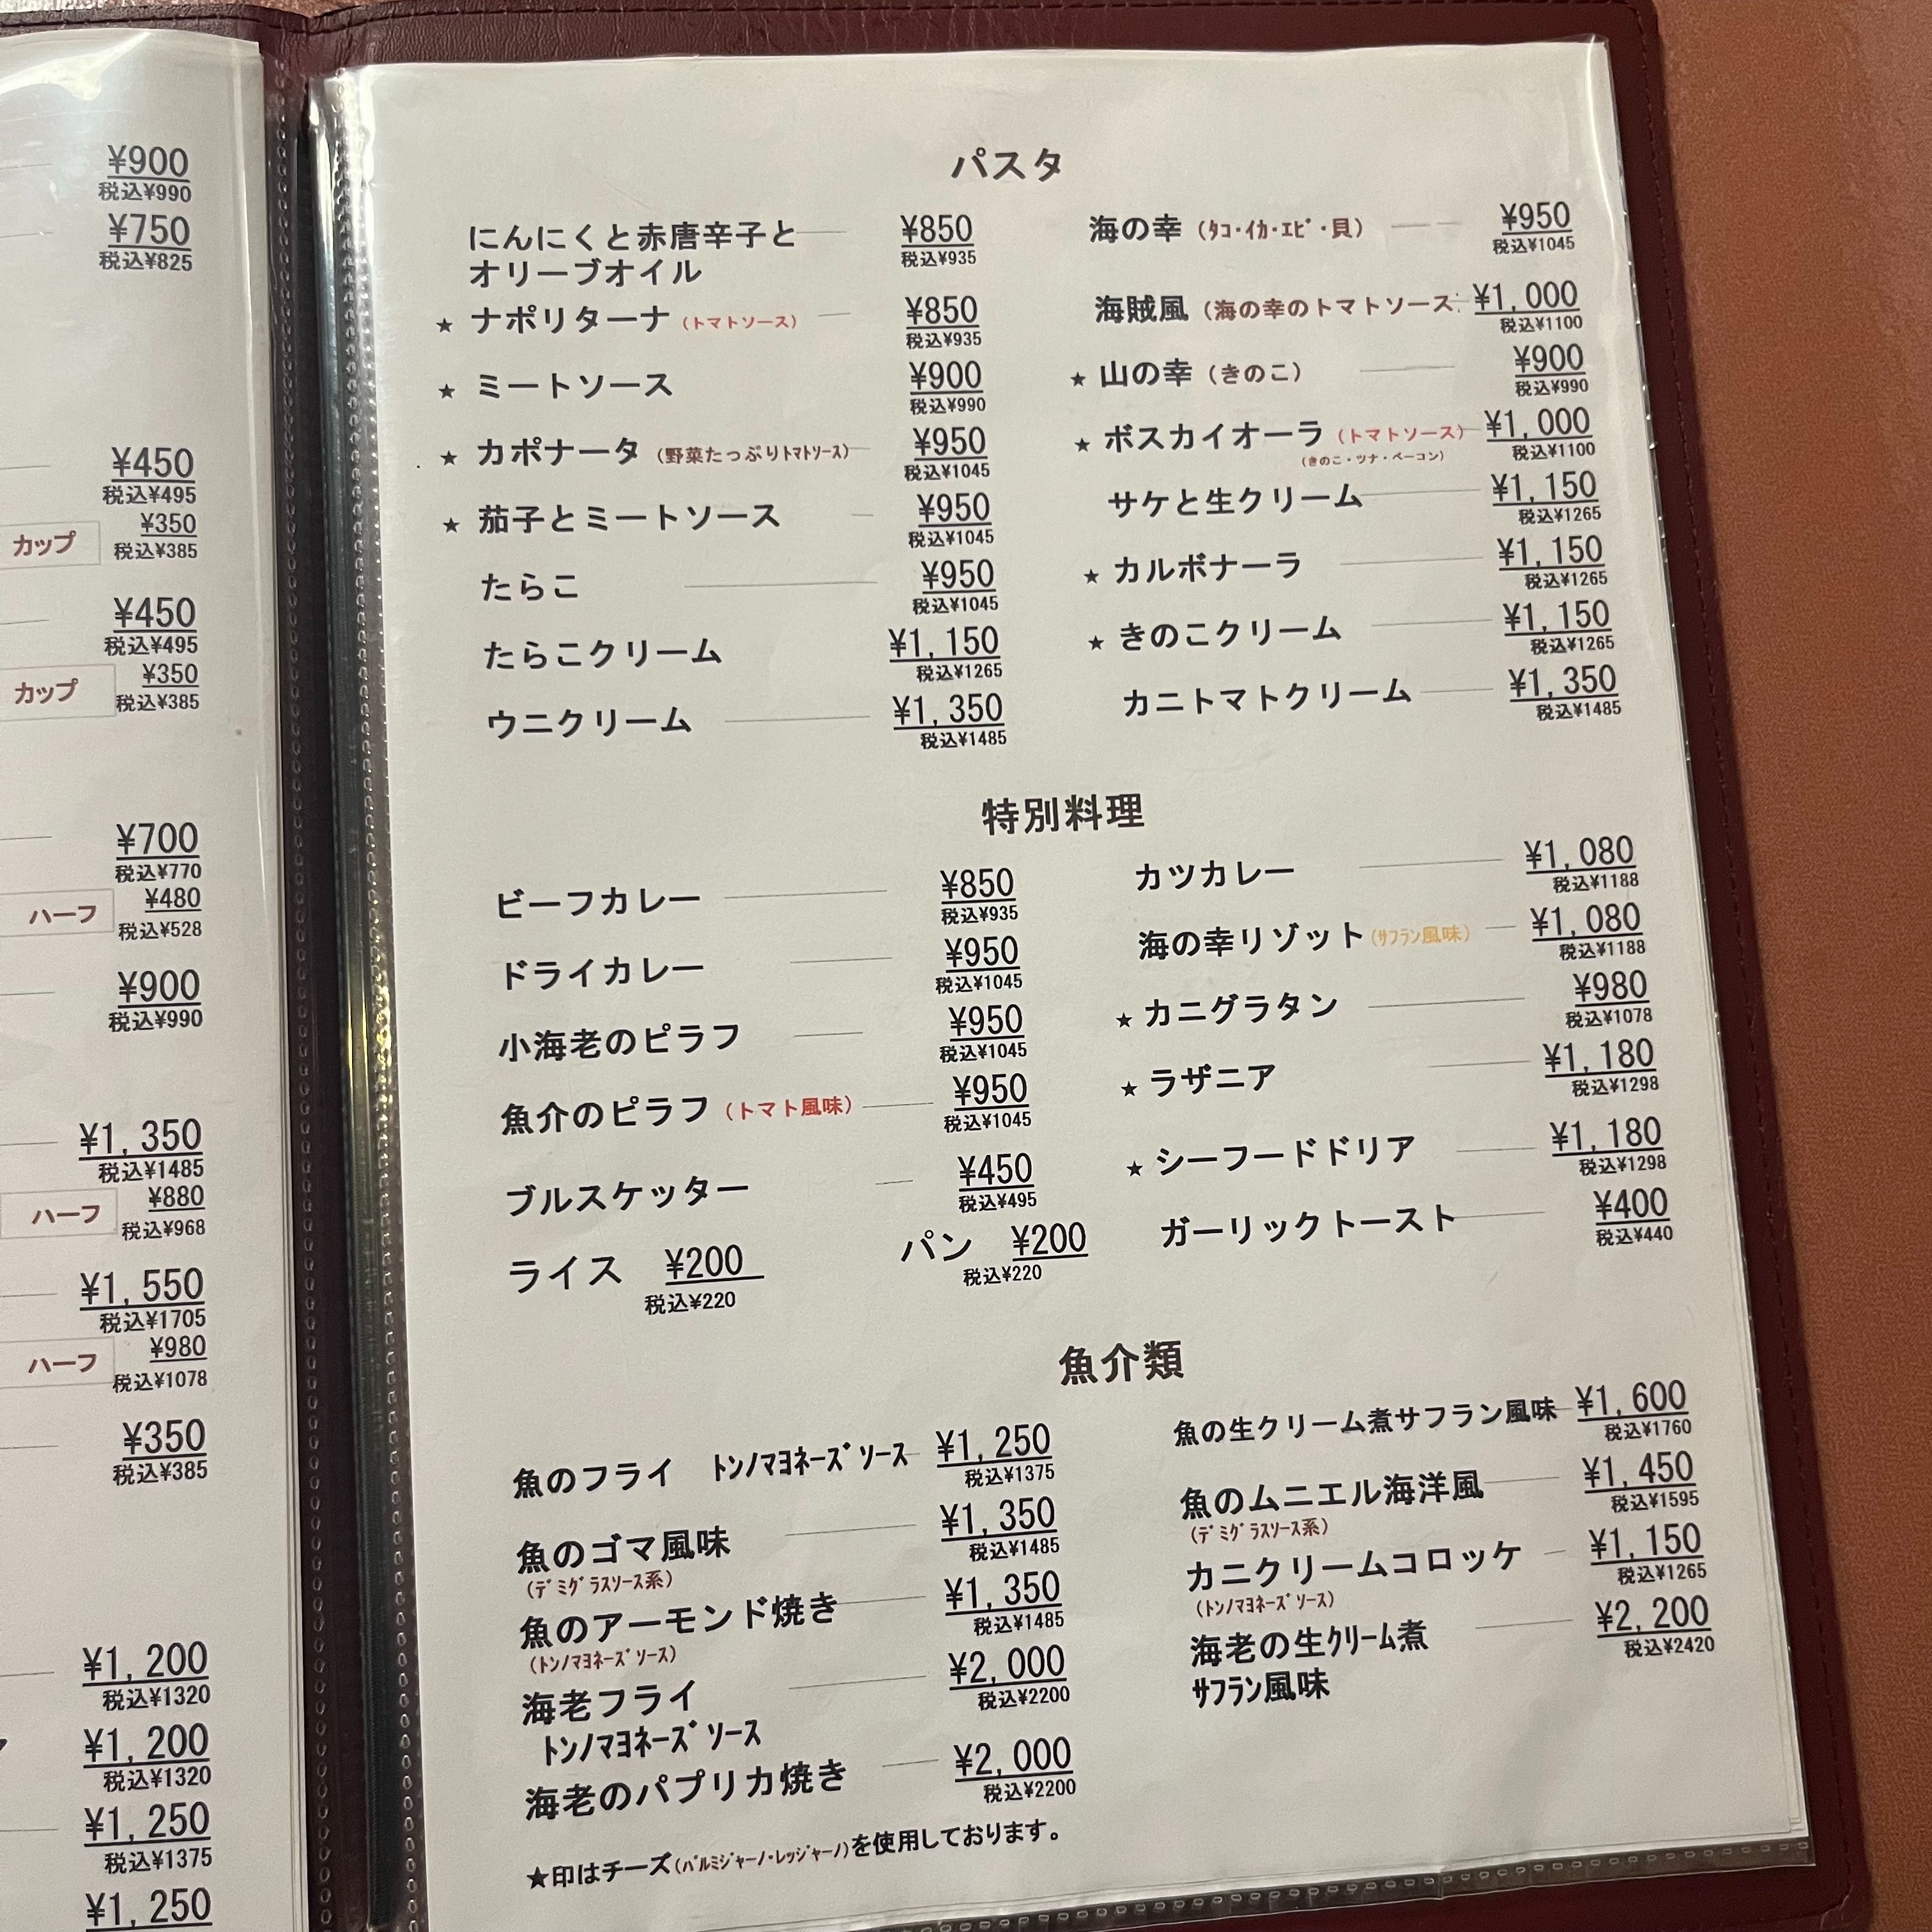 ¥900
税込¥990
¥750
税込¥825
¥450
税込¥495
カップ ¥350
税込¥385
¥450
税込¥495
カップ ¥350
税込¥385
¥700
税込¥770
ハーフ ¥480
税込¥528
¥900
税込¥990
¥1,350
税込¥1485
ハーフ ¥880
税込¥968
¥1,550
税込¥1705
ハーフ ¥980
税込¥1078
¥350
税込¥385
¥1,200
税込¥1320
¥1,200
税込¥1320
¥1,250
税込¥1375
¥1,250
パスタ
にんにくと赤唐辛子と ¥850
オリーブオイル 税込¥935
★ ナポリターナ (トマトソース) ¥850
税込¥935
★ ミートソース ¥900
税込¥990
★ カポナータ (野菜たっぷりﾄﾏﾄｿｰｽ) ¥950
税込¥1045
★ 茄子とミートソース ¥950
税込¥1045
たらこ ¥950
税込¥1045
たらこクリーム ¥1,150
税込¥1265
ウニクリーム ¥1,350
税込¥1485
海の幸 (ﾀｺ・ｲｶ・ｴﾋﾞ・貝) ¥950
税込¥1045
海賊風 (海の幸のトマトソース ¥1,000
税込¥1100
★ 山の幸 (きのこ) ¥900
税込¥990
★ ボスカイオーラ (トマトソース) ¥1,000
(きのこ・ツナ・ベーコン) 税込¥1100
サケと生クリーム ¥1,150
税込¥1265
★ カルボナーラ ¥1,150
税込¥1265
★ きのこクリーム ¥1,150
税込¥1265
カニトマトクリーム ¥1,350
税込¥1485
特別料理
ビーフカレー ¥850
税込¥935
ドライカレー ¥950
税込¥1045
小海老のピラフ ¥950
税込¥1045
魚介のピラフ (トマト風味) ¥950
税込¥1045
ブルスケッター ¥450
税込¥495
ライス ¥200 パン ¥200
税込¥220 税込¥220
カツカレー ¥1,080
税込¥1188
海の幸リゾット(ｻﾌﾗﾝ風味) ¥1,080
税込¥1188
★ カニグラタン ¥980
税込¥1078
★ ラザニア ¥1,180
税込¥1298
★ シーフードドリア ¥1,180
税込¥1298
ガーリックトースト ¥400
税込¥440
魚介類
魚のフライ ﾄﾝﾉﾏﾖﾈｰｽﾞｿｰｽ ¥1,250
税込¥1375
魚のゴマ風味 ¥1,350
(ﾃﾞﾐｸﾞﾗｽｿｰｽ系) 税込¥1485
魚のアーモンド焼き ¥1,350
(ﾄﾝﾉﾏﾖﾈｰｽﾞｿｰｽ) 税込¥1485
海老フライ ¥2,000
ﾄﾝﾉﾏﾖﾈｰｽﾞｿｰｽ 税込¥2200
海老のパプリカ焼き ¥2,000
税込¥2200
魚の生クリーム煮サフラン風味 ¥1,600
税込¥1760
魚のムニエル海洋風 ¥1,450
(ﾃﾞﾐｸﾞﾗｽｿｰｽ系) 税込¥1595
カニクリームコロッケ ¥1,150
(ﾄﾝﾉﾏﾖﾈｰｽﾞｿｰｽ) 税込¥1265
海老の生ｸﾘｰﾑ煮 ¥2,200
ｻﾌﾗﾝ風味 税込¥2420
★印はチーズ(ﾊﾟﾙﾐｼﾞｬｰﾉ・ﾚｯｼﾞｬｰﾉ)を使用しております。